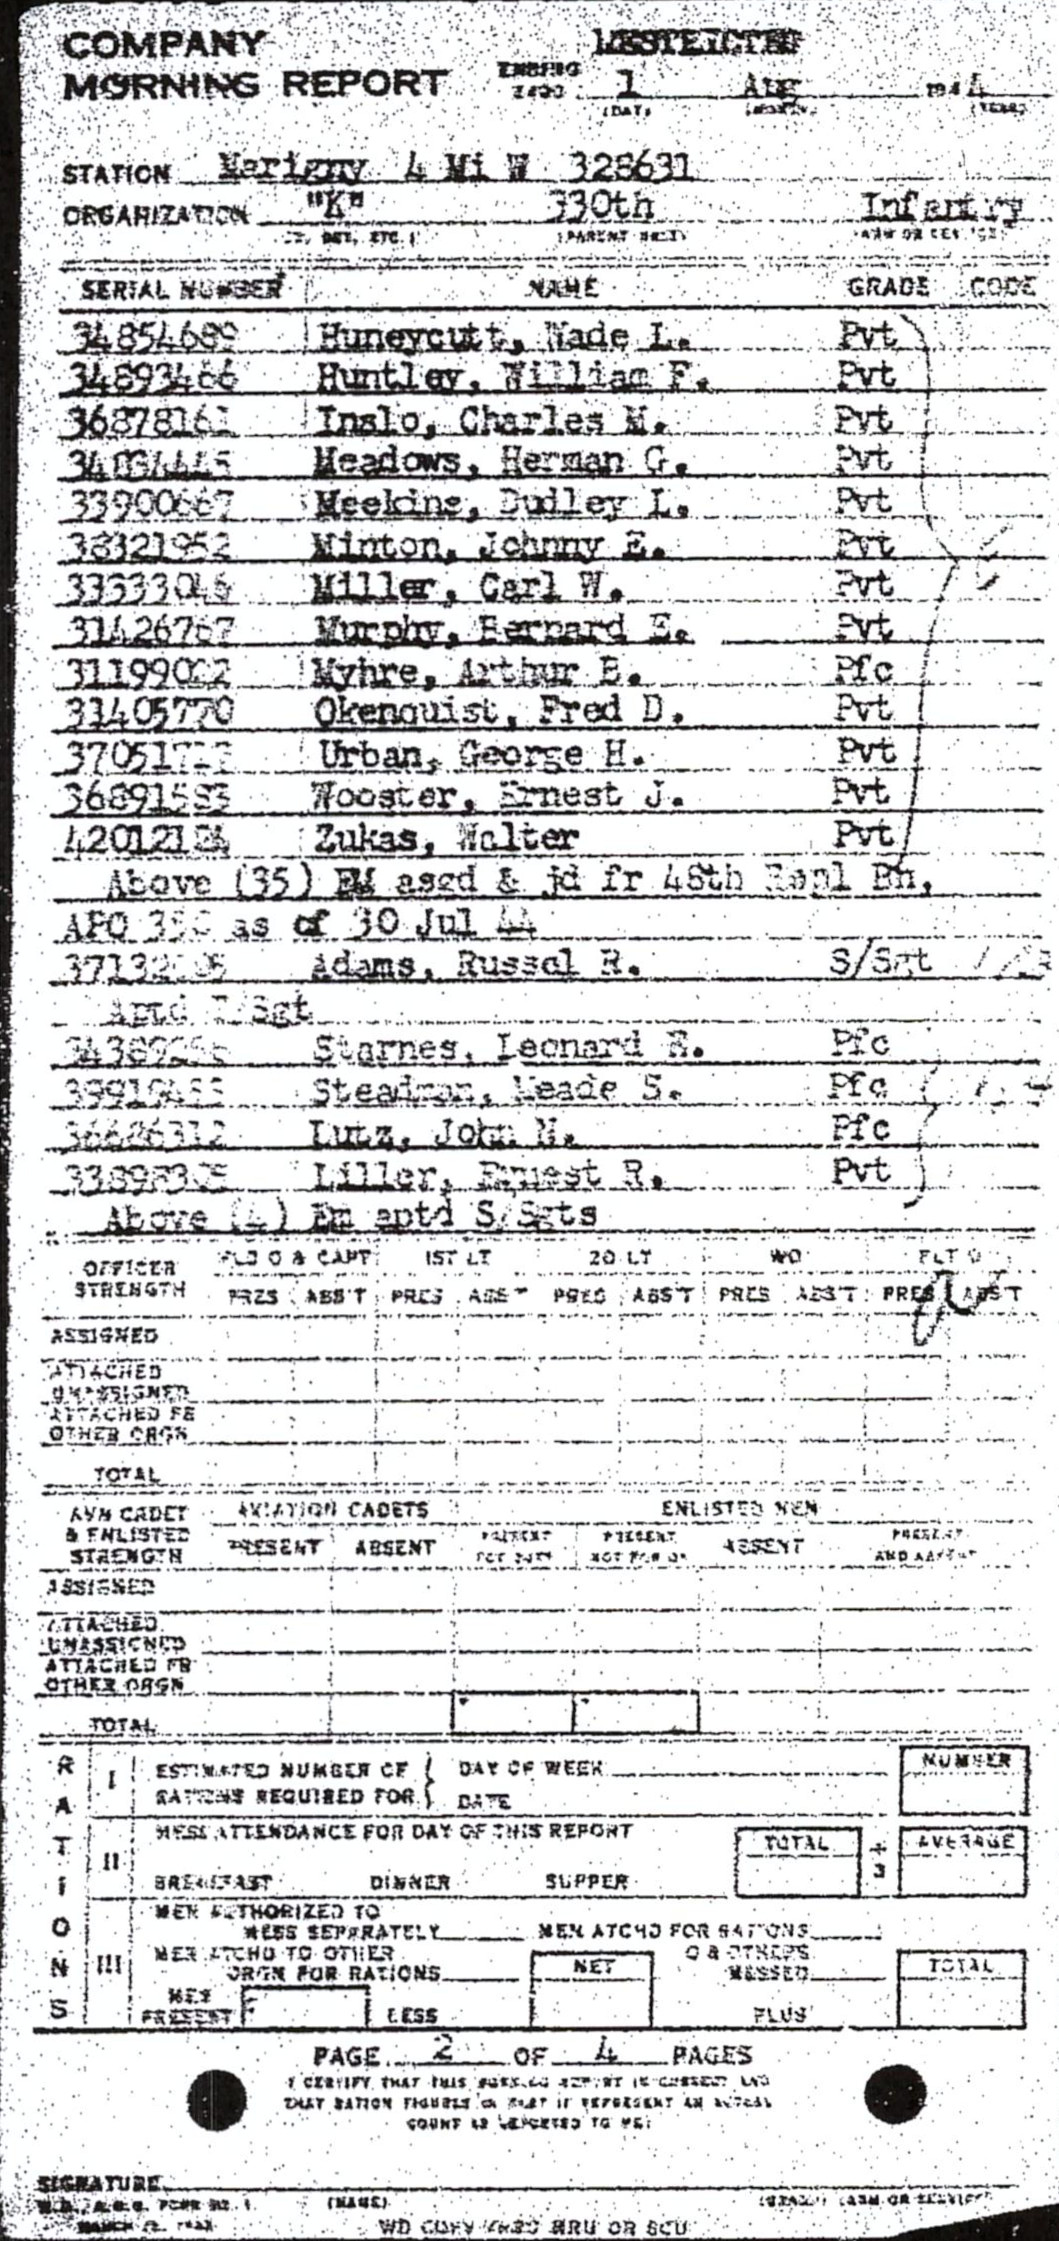 COMPANY
MORNING REPORT
ENDING 2400 1 Aug 1944
(DAY) (MONTH) (YEAR)
STATION Marigny 4 Mi W 328631
ORGANIZATION "K" 330th Infantry
(PARENT UNIT)
SERIAL NUMBER NAME GRADE CODE
Huneycutt, Wade L. Pvt
34893466 Huntley, William F. Pvt
Inslo, Charles M. Pvt
Meadows, Herman G. Pvt
33900667 Meekins, Dudley L. Pvt
38321952 Minton, Johnny E. Pvt
33533046 Miller, Carl W. Pvt
31426767 Murphy, Bernard E. Pvt
Myhre, Arthur B. Pfc
Okenquist, Fred D. Pvt
Urban, George H. Pvt
36891583 Wooster, Ernest J. Pvt
Zukas, Walter Pvt
Above (35) EM asgd & jd fr 48th Repl Bn,
APO as of 30 Jul 44
Adams, Russel R. S/Sgt
Aptd T/Sgt
Starnes, Leonard R. Pfc
Steadman, Meade S. Pfc
36686312 Lutz, John N. Pfc
Liller, Ernest R. Pvt
Above (4) Em aptd S/Sgts
OFFICER STRENGTH FLD O & CAPT 1ST LT 2D LT WO FLT O
PRES ABS'T PRES ABS'T PRES ABS'T PRES ABS'T PRES ABS'T
ASSIGNED
ATTACHED
UNASSIGNED
ATTACHED FR
OTHER ORGN
TOTAL
AVN CADET & ENLISTED STRENGTH AVIATION CADETS ENLISTED MEN
PRESENT ABSENT PRESENT FOR DUTY PRESENT NOT FOR DY ABSENT PRESENT AND ABSENT
ASSIGNED
ATTACHED
UNASSIGNED
ATTACHED FR
OTHER ORGN
TOTAL
RATIONS
I ESTIMATED NUMBER OF RATIONS REQUIRED FOR DAY OF WEEK NUMBER
DATE
II MESS ATTENDANCE FOR DAY OF THIS REPORT TOTAL ÷ 3 AVERAGE
BREAKFAST DINNER SUPPER
III MEN AUTHORIZED TO
MESS SEPARATELY MEN ATCHD FOR RATIONS
MEN ATCHD TO OTHER
ORGN FOR RATIONS NET O & OTHERS MESSED TOTAL
MEN PRESENT LESS PLUS
PAGE 2 OF 4 PAGES
I CERTIFY THAT THIS MORNING REPORT IS CORRECT AND
THAT RATION FIGURES IN PART II REPRESENT AN ACTUAL
COUNT AS REPORTED TO ME:
SIGNATURE
W.D., A.G.O. FORM NO. 1 (NAME) (GRADE) (ARM OR SERVICE)
WD COPY THRU MRU OR SCU